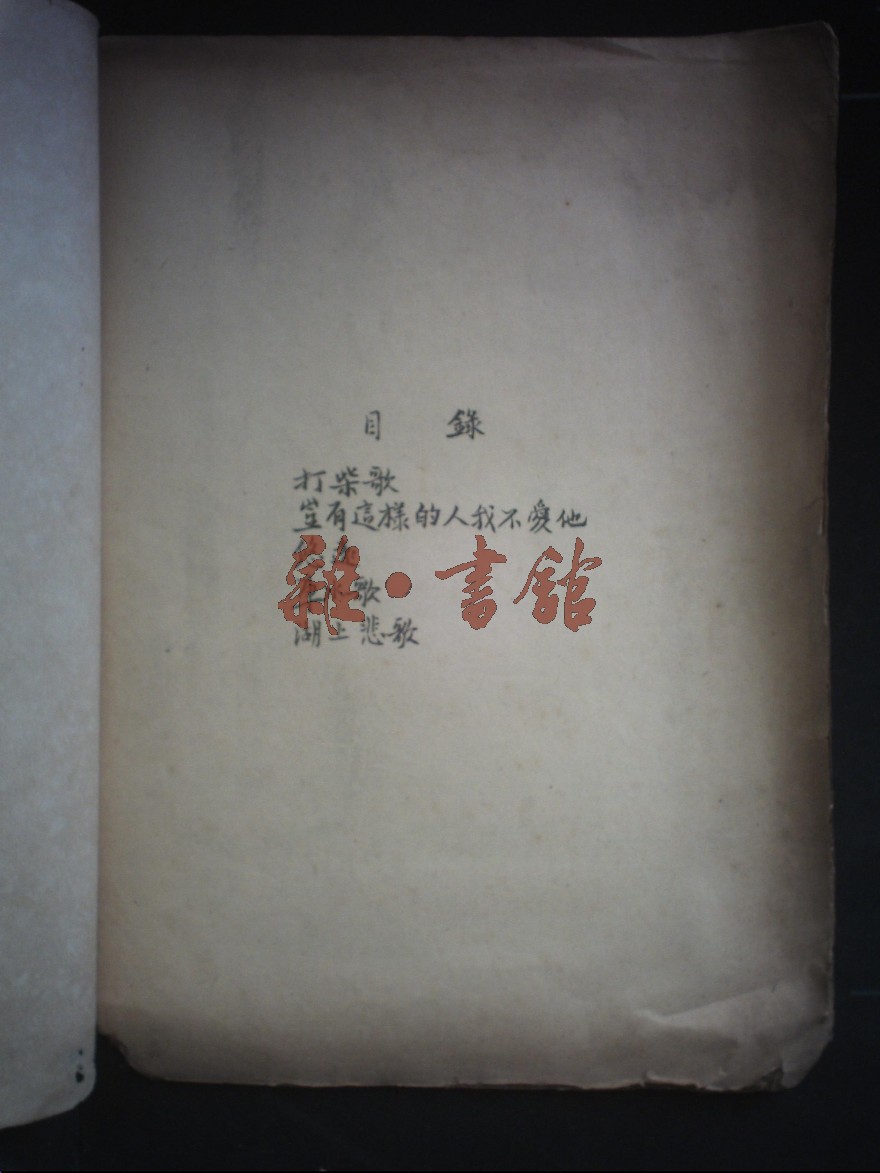 目 錄
打柴歌
豈有這樣的人我不愛他
歌
湖上悲歌
雜·書館